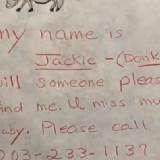 my name is
Jackie - (Donk
will someone pleas
find me. U miss ma
aby. Please call
203-233-1137